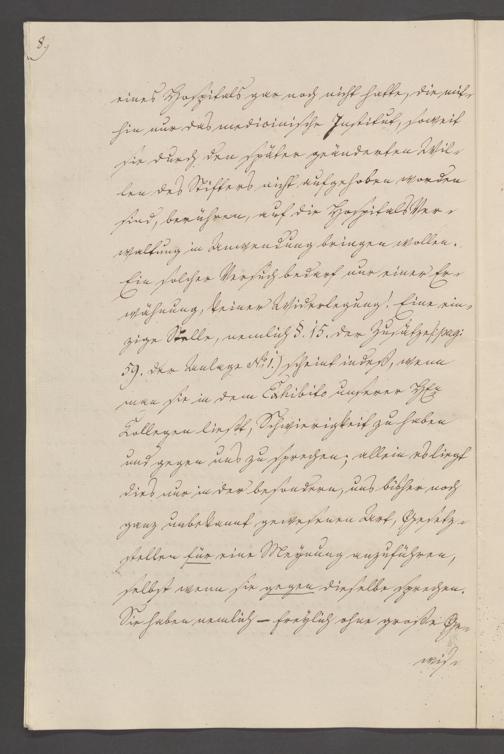 8,
eines Hospitals gar noch nicht hatte, die mit-
hin nur das medicinische Institut, soweit
sie durch den später geänderten Wil-
len des Stifters nicht aufgehoben worden
sind, berühren, auf die Hospitals Ver-
waltung in Anwendung bringen wollen.
Ein solcher Versuch bedarf nur einer Er-
wähnung, keiner Widerlegung! Eine ein-
zige Stelle, nemlich §. 15. der Zusätze (pag.
59. der Anlage No 1.) scheint indeß, wenn
man sie in dem Exhibito unserer HEn
Collegen liest, Schwierigkeit zu haben
und gegen uns zu sprechen; allein es liegt
dies nur in der besondern, uns bisher noch
ganz unbekannt gewesenen Art, Gesetz-
stellen für eine Meynung anzuführen,
selbst wenn sie gegen dieselbe sprechen.
Sie haben nemlich – freylich ohne große Ge-
wis-